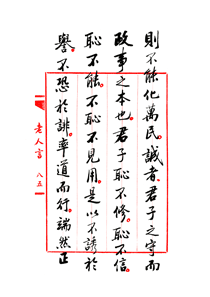 則不能化萬民誠者君子之守而
政事之本也君子恥不修恥不信
恥不能不恥不見用是以不誘於
譽不恐於誹率道而行端然正
老人言 八五